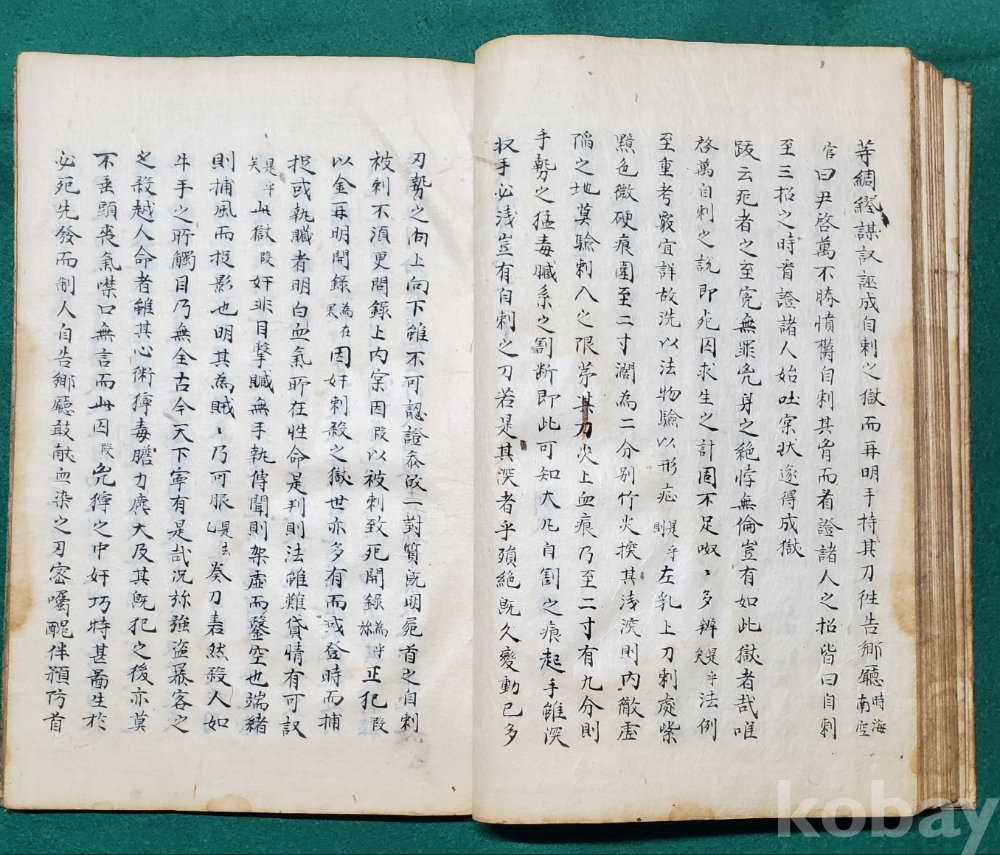 等綢繆謀議誣成自刺之獄而再明干持其刀徃告鄕廳時海南空
官曰尹啓萬不勝憤欝自刺其胷而看證諸人之招皆曰自刺
至三招之時看證諸人始吐宲狀遂得成獄
跋云死者之至寃無罪兇身之絶悖無倫豈有如此獄者哉唯
啓萬自刺之說即死囚求生之計固不足呶〻多辨是乎矣法例
至重考竅宜詳故洗以法物驗以形症是乎則左乳上刀刺處紫
黯色微硬痕圍至二寸濶為二分別竹火揬其淺深則內散虛
陷之地莫驗刺入之限茅其刀尖上血痕乃至二寸有九分則
手勢之猛毒臟系之割断即此可知大凡自割之痕起手雖深
収手必淺豈有自刺之刀若是其深者乎殞絶旣久變動已多
刃勢之向上向下雖不可認證叅放一封質旣明寃首之自刺
被刺不須更開錄上內宲因段以被刺致死開錄為弥正犯段
以金再明開錄為在果因奸刺殺之獄世亦多有而或登時而捕
捉或執贓者明白血氣所在性命是判則法雖難貸情有可議
是乎矣此獄段奸非目擊贓無手執傳聞則架虛而鑿空也端緖
則捕風而捉影也明其為賊〻乃可服是去乙奏刀砉然殺人如
牛手之所觸目乃無全古今天下寧有是哉况弥強盜暴客之
之殺越人命者雖其心術獰毒膽力麁大及其旣犯之後亦莫
不垂頭喪氣噤口無言而此囚段兇獰之中奸巧特甚啚生於
必死先發而制人自告鄕廳敢献血染之刀宻囑醜伴預防首